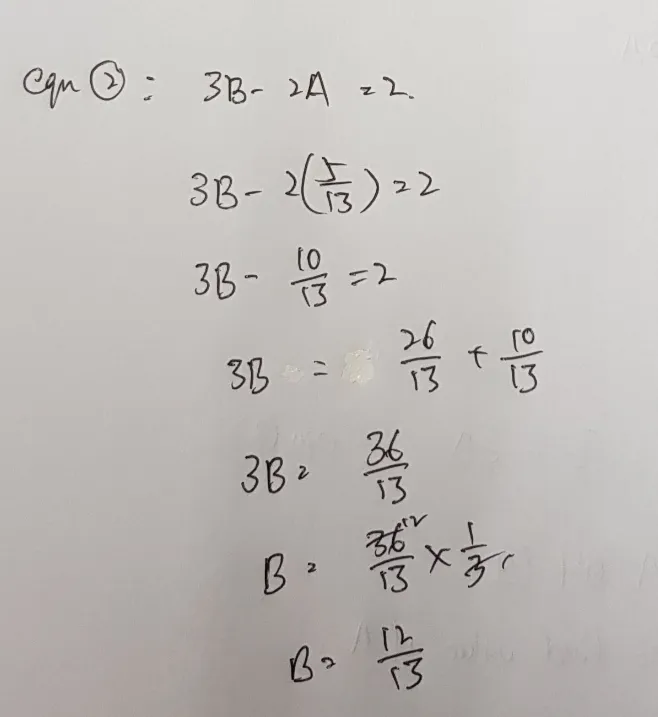 Eqn ② : 3B - 2A = 2.
3B - 2(5/13) = 2
3B - 10/13 = 2
3B = 26/13 + 10/13
3B = 36/13
B = 36/13 12 × 1/3
B = 12/13